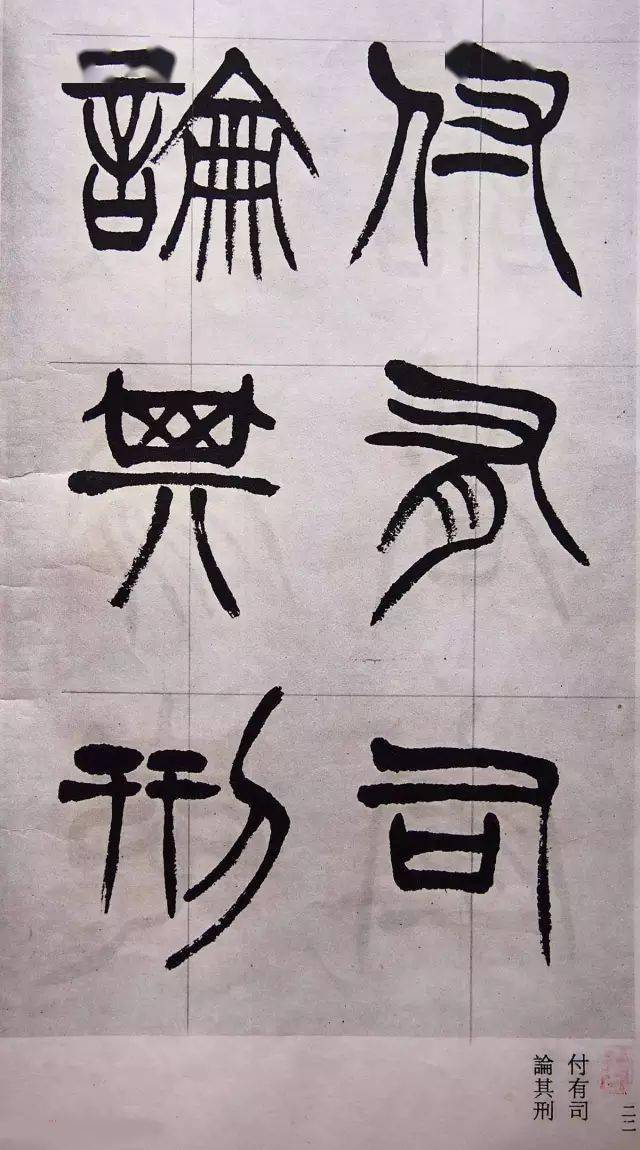 付有司
論其刑
付有司
論其刑
二二